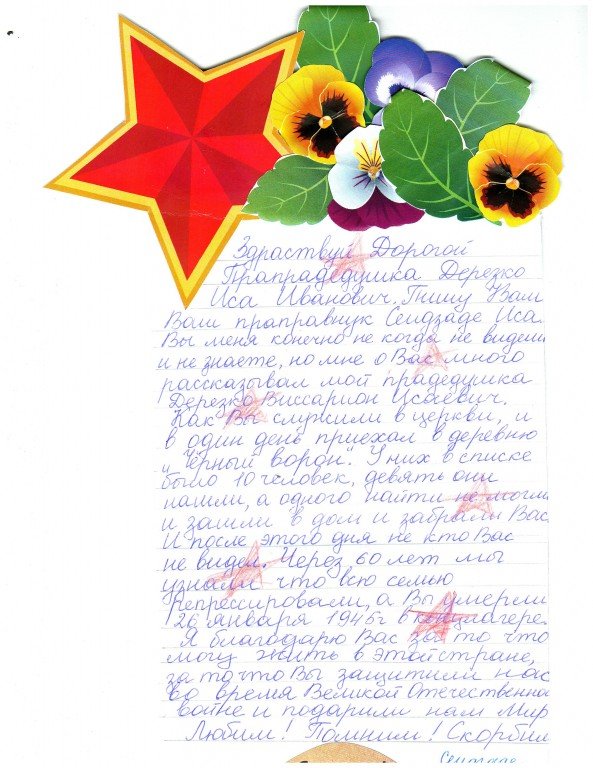 Здраствуй Дорогой
Прапрадедушка Дерезко
Иса Иванович. Пишу Вам
Ваш праправнук Сеидзаде Иса.
Вы меня конечно не когда не видели
и не знаете, но мне о Вас много
рассказывал мой прадедушка
Дерезко Виссарион Исаевич.
Как Вы служили в церкви, и
в один день приехал в деревню
и "Чёрный ворон". У них в списке
было 10 человек, девять они
нашли, а одного найти не могли
и зашли в дом и забрали Вас.
И после этого дня не кто Вас
не видел. Через 60 лет мы
узнали что всю семью
репрессировали, а Вы умерли
26 января 1945г в концлагере.
Я благодарю Вас за то что
могу жить в этой стране,
за то что Вы защитили нас
во время Великой Отечественно
войне и подарили нам Мир
Любим! Помним! Скорбим
Сеидзаде